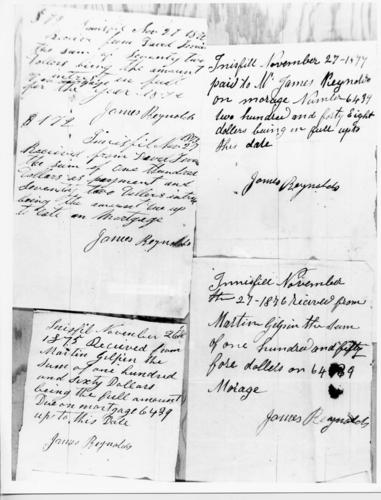 $ 72
Innisfil Nov 27 18
from David
the sum of Seventy two
Dollars being the amount
of in full
for the year
James Reynolds
$ 172
Innisfil Nov 27
Received from David
the sum of one hundred
Dollars as payment and
seventy two Dollars
being the amount due up
to date on Mortgage
James Reynolds
Innisfil November 27 - 1877
paid to Mr James Reynolds
on morage Number 6489
two hundred and forty Eight
dollers being in full upto
this date
James Reynolds
Innisfil November 26th
1875 Recieved from
Martin Gilpin the
Sum of one hundred
and Sixty Dollars
being the full amount
Due on mortgage 6489
up to this Date
James Reynolds
Innisfill November
the 27 - 1876 recieved from
Martin Gilpin the sum
of one hundred and fifty
fore dollets on 6489
Morage
James Reynolds